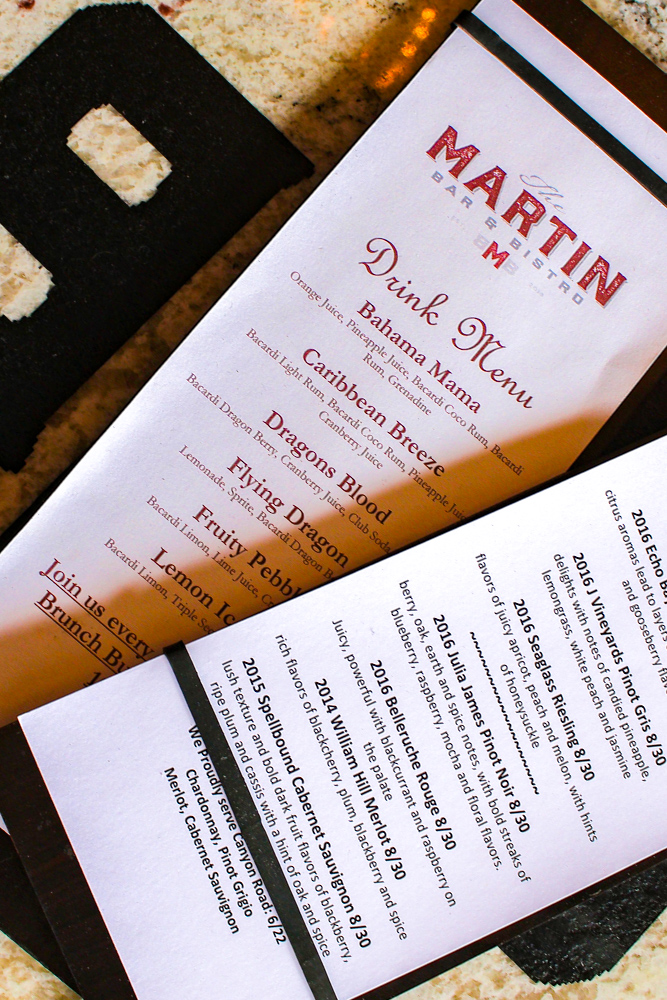 The
MARTIN
BAR & BISTRO
BMB
Drink Menu
Bahama Mama
Orange Juice, Pineapple Juice, Bacardi Coco Rum, Bacardi
Rum, Grenadine
Caribbean Breeze
Bacardi Light Rum, Bacardi Coco Rum, Pineapple Juice
Cranberry Juice
Dragons Blood
Bacardi Dragon Berry, Cranberry Juice, Club Soda
Flying Dragon
Lemonade, Sprite, Bacardi Dragon B
Fruity Pebbl
Bacardi Limon, Lime Juice, Cr
Lemon Ic
Bacardi Limon, Triple Sec
Join us every
Brunch Bu
2016 Echo Ba
citrus aromas lead to layers
and gooseberry fla
2016 J Vineyards Pinot Gris 8/30
delights with notes of candied pineapple,
lemongrass, white peach and jasmine
2016 Seaglass Riesling 8/30
flavors of juicy apricot, peach and melon, with hints
of honeysuckle
~~~~~~~~~~~~~~~~
2016 Julia James Pinot Noir 8/30
berry, oak, earth and spice notes, with bold streaks of
blueberry, raspberry, mocha and floral flavors.
2016 Belleruche Rouge 8/30
Juicy, powerful with blackcurrant and raspberry on
the palate
2014 William Hill Merlot 8/30
rich flavors of blackcherry, plum, blackberry and spice
2015 Spellbound Cabernet Sauvignon 8/30
lush texture and bold dark fruit flavors of blackberry,
ripe plum and cassis with a hint of oak and spice
We Proudly serve Canyon Road: 6/22
Chardonnay, Pinot Grigio
Merlot, Cabernet Sauvignon